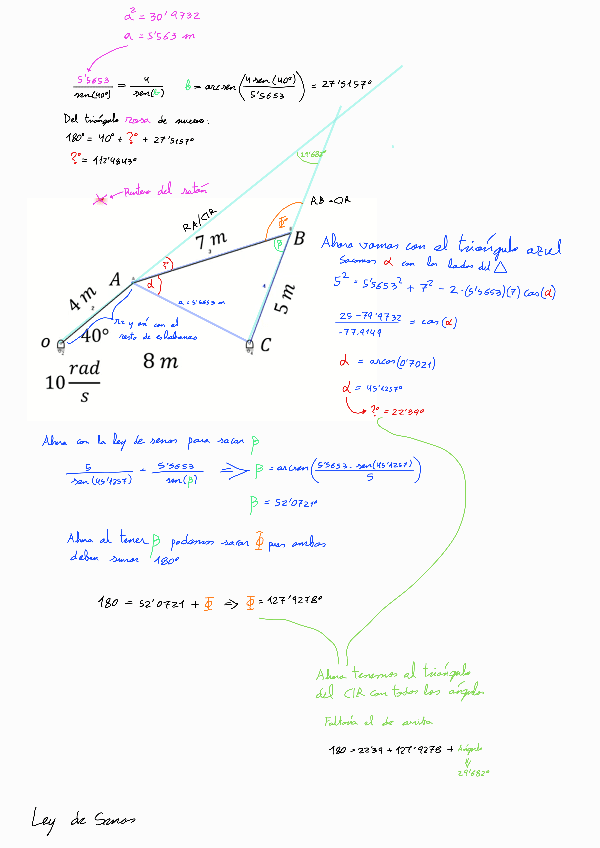 a² = 30'9732
a = 5'563 m
5'5653/sen(40°) = 4/sen(6) 6 = arcsen(4 sen(40°)/5'5653) = 27'5157°
Del triángulo rosa de nuevo:
180° = 40° + ?° + 27'5157°
?° = 112'4843°
Puntero del ratón
29'682°
RA/CIR
RB-CIR
7 m
Φ
B
β
A
?°
α
4 m
a = 5'5653 m
5 m
R2 y así con el
resto de eslabones
O
40°
C
8 m
10 rad/s
Ahora vamos con el triángulo azul
Sacamos α con los lados del △
5² = 5'5653² + 7² - 2·(5'5653)(7) cos(α)
25 - 79'9732/-77.9149 = cos(α)
α = arcos(0'7021)
α = 45'4257°
?° = 22'39°
Ahora con la ley de senos para sacar β
5/sen(45'4257) = 5'5653/sen(β) ⇒ β = arcsen(5'5653 · sen(45'4257)/5)
β = 52'0721°
Ahora al tener β podemos sacar Φ pues ambos
deben sumar 180°
180 = 52'0721 + Φ ⇒ Φ = 127'9278°
Ahora tenemos al triángulo
del CIR con todos los ángulos
Faltaría el de arriba
180 = 22'39 + 127'9278 + Ángulo
29'682°
Ley de Senos